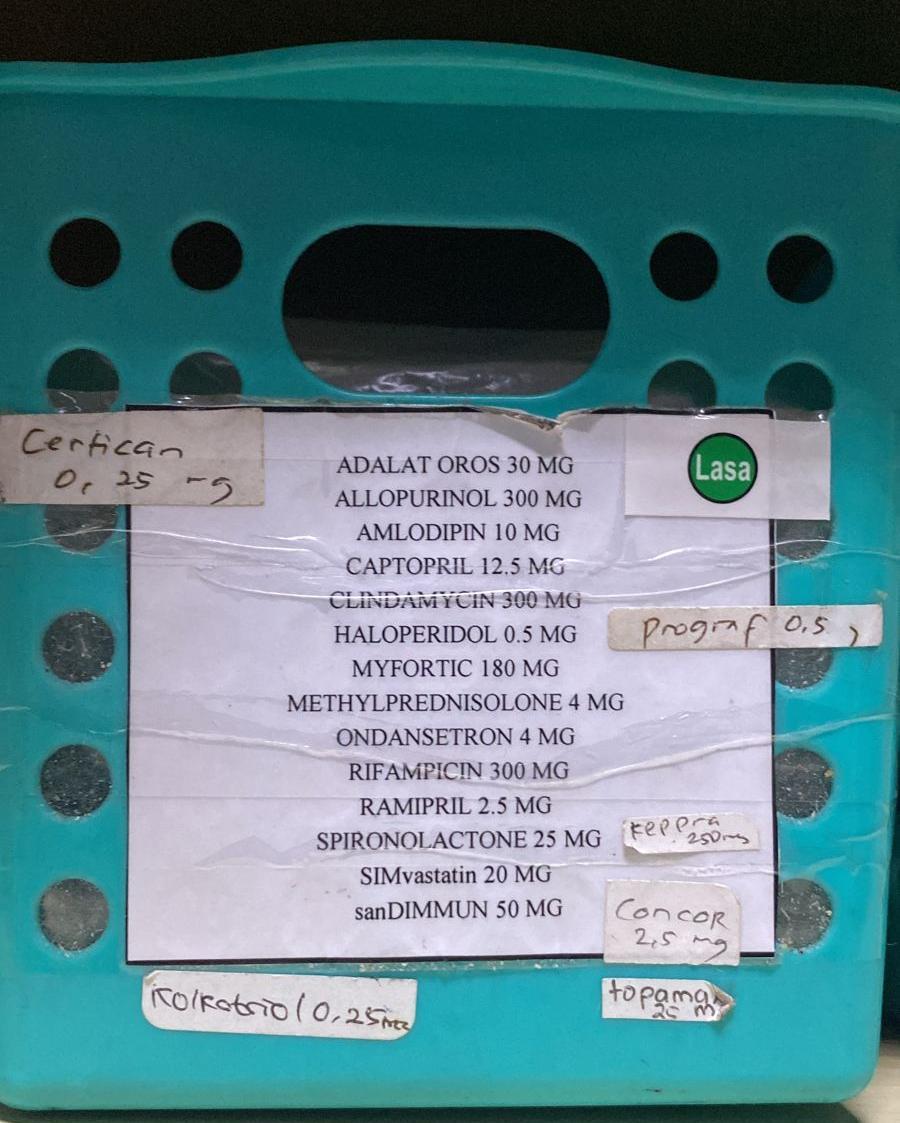 Certican
0,25 mg
Lasa
ADALAT OROS 30 MG
ALLOPURINOL 300 MG
AMLODIPIN 10 MG
CAPTOPRIL 12.5 MG
CLINDAMYCIN 300 MG
HALOPERIDOL 0.5 MG
Prograf 0,5
MYFORTIC 180 MG
METHYLPREDNISOLONE 4 MG
ONDANSETRON 4 MG
RIFAMPICIN 300 MG
RAMIPRIL 2.5 MG
SPIRONOLACTONE 25 MG
Keppra
250mg
SIMvastatin 20 MG
sanDIMMUN 50 MG
Concor
2,5 mg
0,25
topamax
25 m